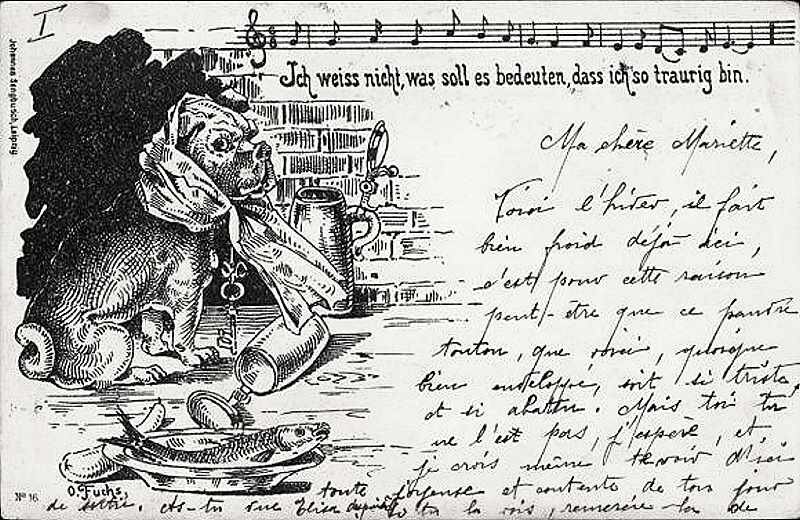 I
Johannes Stenglursch, Leipzig
Ich weiss nicht, was soll es bedeuten, dass ich so traurig bin.
Ma chère Mariette,
Voici l'hiver, il fait
bien froid déjà ici,
c'est pour cette raison
peut-être que ce pauvre
toutou, que voici, quoique
bien enveloppé, soit si triste
et si abattu. Mais toi tu
ne l'est pas, j'espère, et
je crois même te voir d'ici
toute joyeuse et contente de ton jour
de sortie. As-tu vue Elisa depuis
tu la vois, remercie-la de
No 16
O. Fuchs